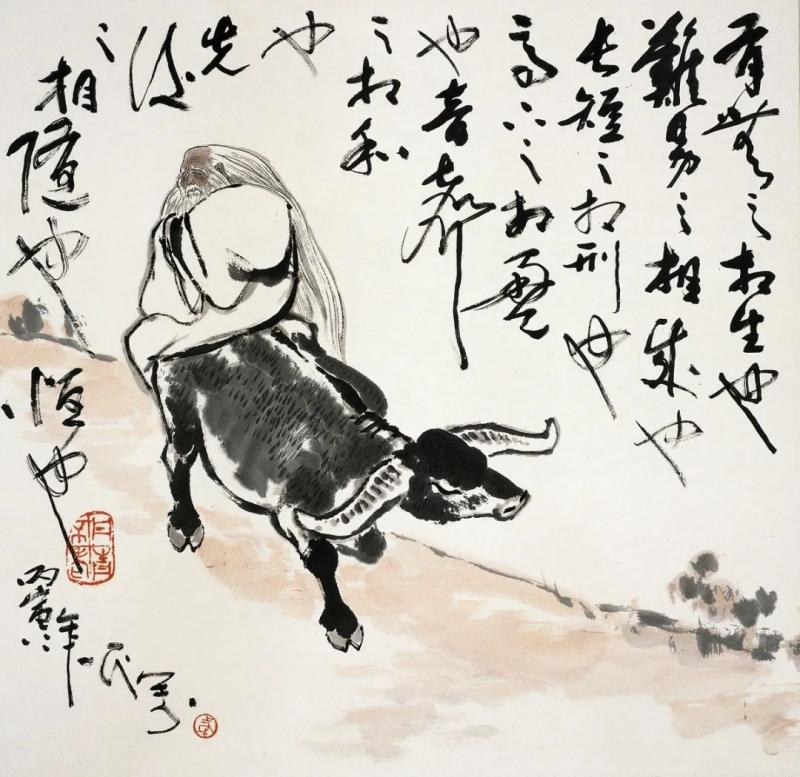 有無之相生也
難易之相成也
長短之相刑也
高下之相盈
也音聲
之相和
也
先
後
之相隨也
恒也
丙寅年
一民
寫